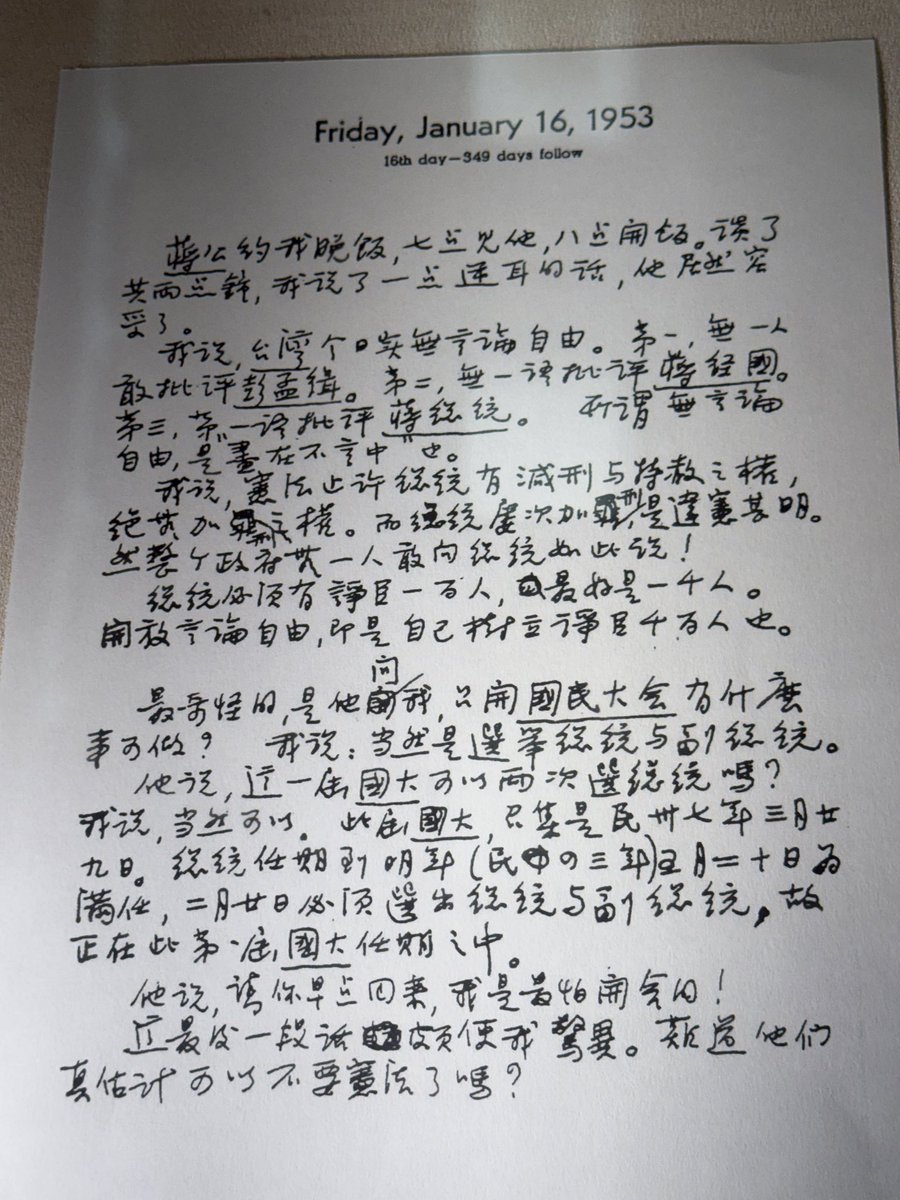 Friday, January 16, 1953
16th day—349 days follow
蒋公约我晚飯,七点见他,八点開饭。談了
共两点鐘,我说了一点逆耳的话,他居然容
受了。
我说,台湾今日实無言論自由。第一,無一人
敢批评彭孟缉。第二,無一语批评蒋经國。
第三,無一语批评蒋総统。所謂無言論
自由,是"盡在不言中"也。
我说,憲法止许総統有减刑与特赦之権,
绝無加刑之権。而総统屡次加刑,是違憲甚明。
然整个政府無一人敢向総统如此说!
総统必须有諍臣一百人,最好是一千人。
開放言論自由,即是自己樹立諍臣千百人也。
最奇怪的,是他問我,只開國民大会有什麽
事可做? 我说:当然是選举総统与副総统。
他说,这一届國大可以两次選総统嗎?
我说,当然可以。此届國大,召集是民卅七年三月廿
九日。総统任期到明年(民四三年)五月二十日为
满任,二月廿日必须選出総统与副総统,故
正在此第一届國大任期之中。
他说,請你早点回来,我是最怕開会的!
这最後一段话颇使我驚異。難道他们
真估计可以不要憲法了嗎?